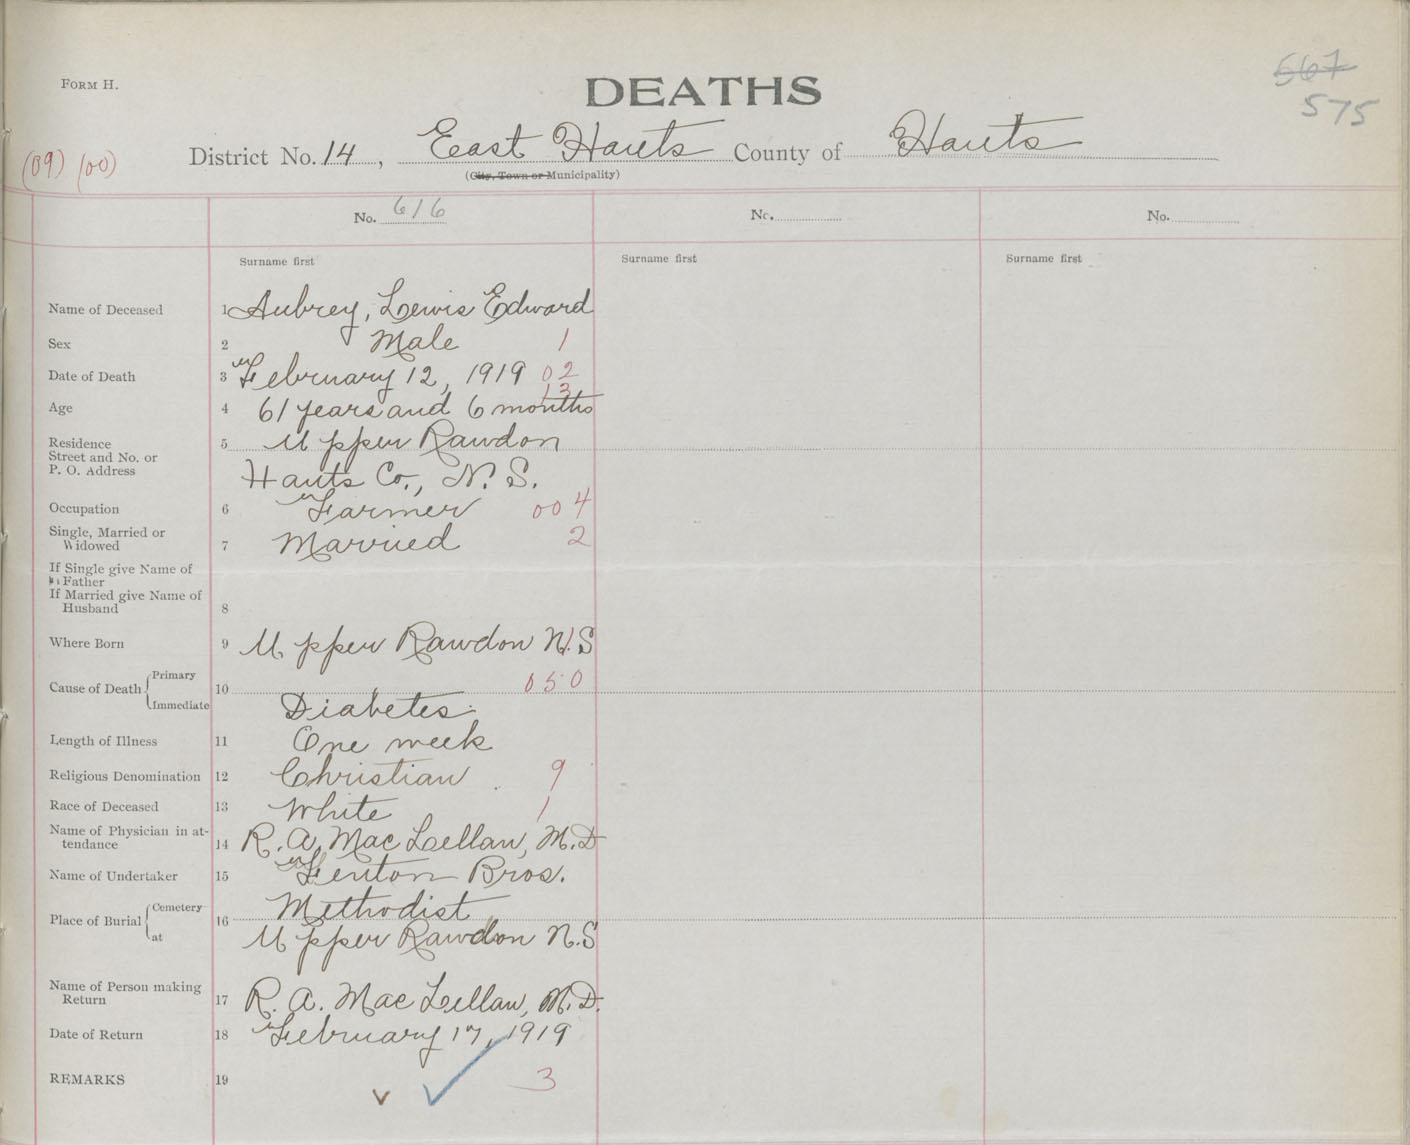 FORM H.
DEATHS
667
575
(09) (00)
District No. 14, East Hants County of Hants
(City, Town or Municipality)
No. 616 No. No.
Surname first Surname first Surname first
Name of Deceased 1 Aubrey, Lewis Edward
Sex 2 Male 1
Date of Death 3 February 12, 1919 02
13
Age 4 61 years and 6 months
Residence 5 Upper Rawdon
Street and No. or
P. O. Address Hants Co., N. S.
Occupation 6 Farmer 004
Single, Married or
Widowed 7 Married 2
If Single give Name of
Father
If Married give Name of
Husband 8
Where Born 9 Upper Rawdon N.S
Primary
Cause of Death 10 050
Immediate Diabetes.
Length of Illness 11 One week
Religious Denomination 12 Christian 9
Race of Deceased 13 White 1
Name of Physician in at-
tendance 14 R. A. MacLellan, M.D
Name of Undertaker 15 Fenton Bros.
Cemetery Methodist
Place of Burial 16
at Upper Rawdon N.S
Name of Person making
Return 17 R. A. MacLellan, M.D.
Date of Return 18 February 17, 1919
REMARKS 19 3